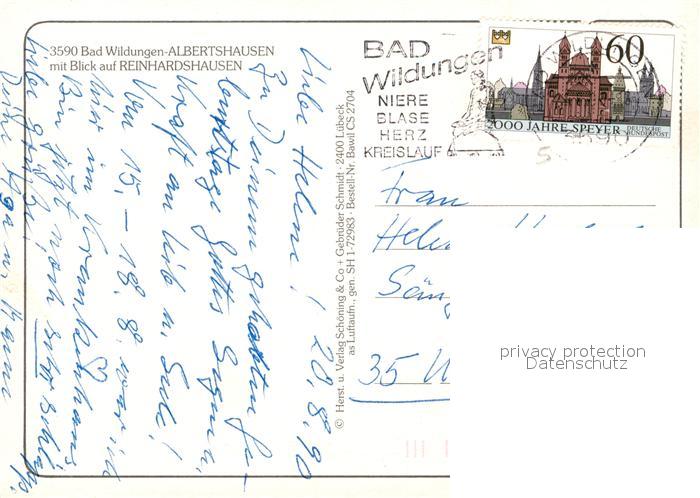 3590 Bad Wildungen-ALBERTSHAUSEN
mit Blick auf REINHARDSHAUSEN
Liebe Helene! 28.8.90
Zu Deinem
Gottes Segen u.
Kraft an Leib u. Seele!
Vom 15.–18.8. war ich
hier im Krankenhaus
Bin jetzt noch sehr schlapp.
Liebe Grüße,
Deine
© Herst. u. Verlag Schöning & Co + Gebrüder Schmidt · 2400 Lübeck
as Luftaufn., gen. SH 1-72983 · Bestell-Nr. Bawil CS 2704
BAD
Wildungen
NIERE
BLASE
HERZ
KREISLAUF
60
2000 JAHRE SPEYER
DEUTSCHE
BUNDESPOST
Frau
35
privacy protection
Datenschutz